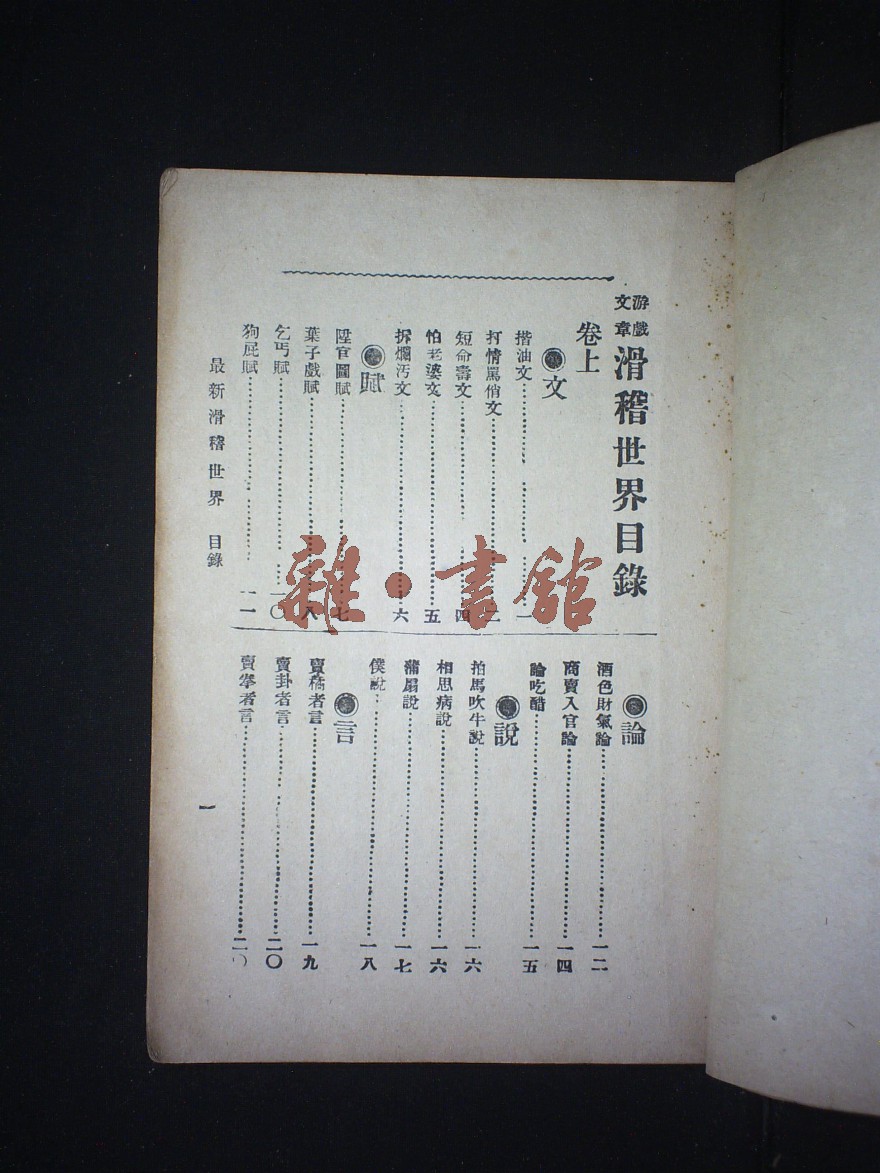 游戲文章 滑稽世界目錄
卷上
◉文
揩油文…………一
打情罵俏文…………二
短命壽文…………四
怕老婆文…………五
拆爛汚文…………六
◉賦
陞官圖賦…………七
葉子戲賦…………八
乞丐賦…………一〇
狗屁賦…………一一
◉論
酒色財氣論…………一二
商賣入官論…………一四
論吃醋…………一五
◉說
拍馬吹牛說…………一六
相思病說…………一六
蒲扇說…………一七
僕說…………一八
◉言
賣稿者言…………一九
賣卦者言…………二〇
賣拳者言…………二〇
最新滑稽世界 目錄
一
雜·書館